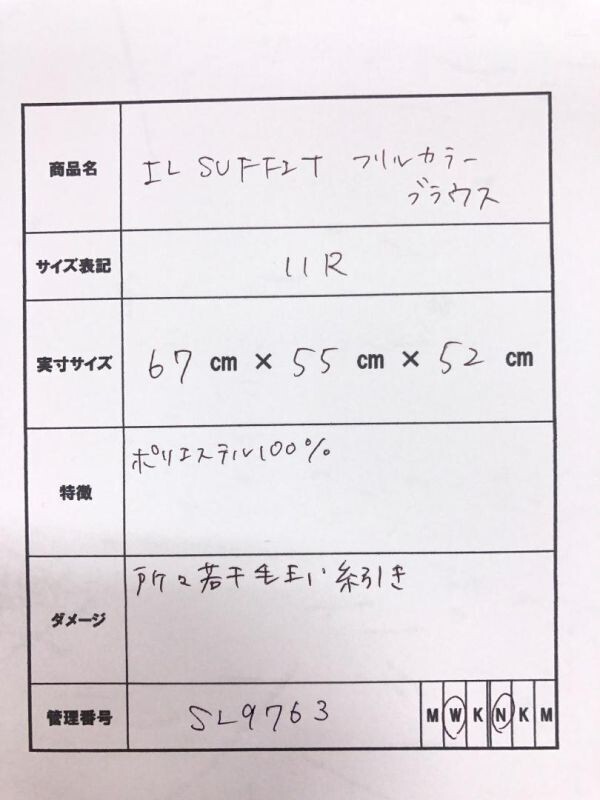 商品名
IL SUFFIT フリルカラー
ブラウス
サイズ表記
11R
実寸サイズ
67 cm × 55 cm × 52 cm
特徴
ポリエステル100%
ダメージ
所々若干毛玉い糸引き
管理番号
SL9763
M W K N K M